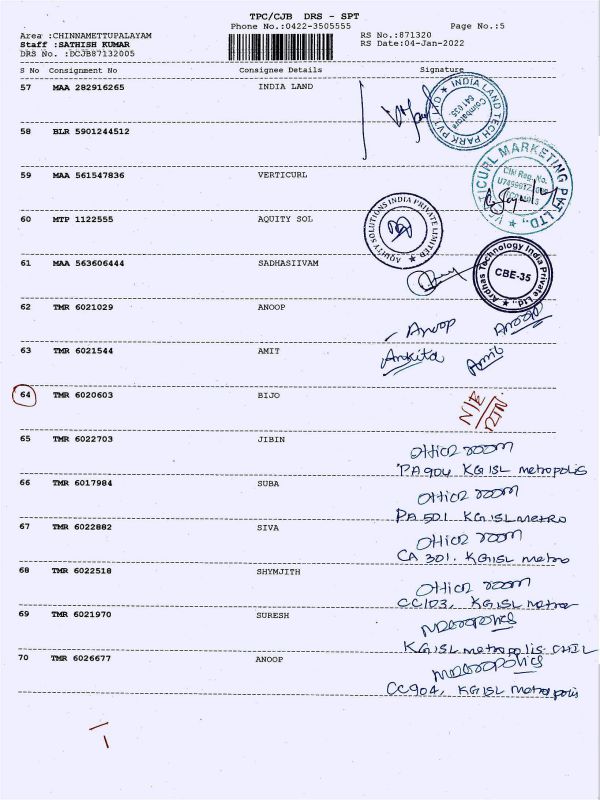 TPC/CJB DRS - SPT
Phone No.:0422-3505555
Page No.:5
Area :CHINNAMETTUPALAYAM
Staff :SATHISH KUMAR
DRS No. :DCJB87132005
RS No.:871320
RS Date:04-Jan-2022
S No Consignment No Consignee Details Signature
57 MAA 282916265 INDIA LAND
INDIA LAND TECH PARK PVT LTD
Coimbatore
641 035
58 BLR 5901244512
59 MAA 561547836 VERTICURL
VERTICURL MARKETING PVT LTD.,
CIN Reg. No.
60 MTP 1122555 AQUITY SOL
AQUITY SOLUTIONS INDIA PRIVATE LIMITED
61 MAA 563606444 SADHASIIVAM
Ardhas Technology India Private Ltd.,
CBE-35
62 TMR 6021029 ANOOP
Anoop Anoop
63 TMR 6021544 AMIT
Ankita Amit
64 TMR 6020603 BIJO
N/E
RTN
65 TMR 6022703 JIBIN
Office room
PA904 KGISL metropolis
66 TMR 6017984 SUBA
Office room
PA 501. KGISL metro
67 TMR 6022882 SIVA
Office room
CA 301. KGISL metro
68 TMR 6022518 SHYMJITH
Office room
CC103, KGISL metro
69 TMR 6021970 SURESH
metropolis
KGISL metropolis CHIL
70 TMR 6026677 ANOOP
metropolis
CC904, KGISL metropolis